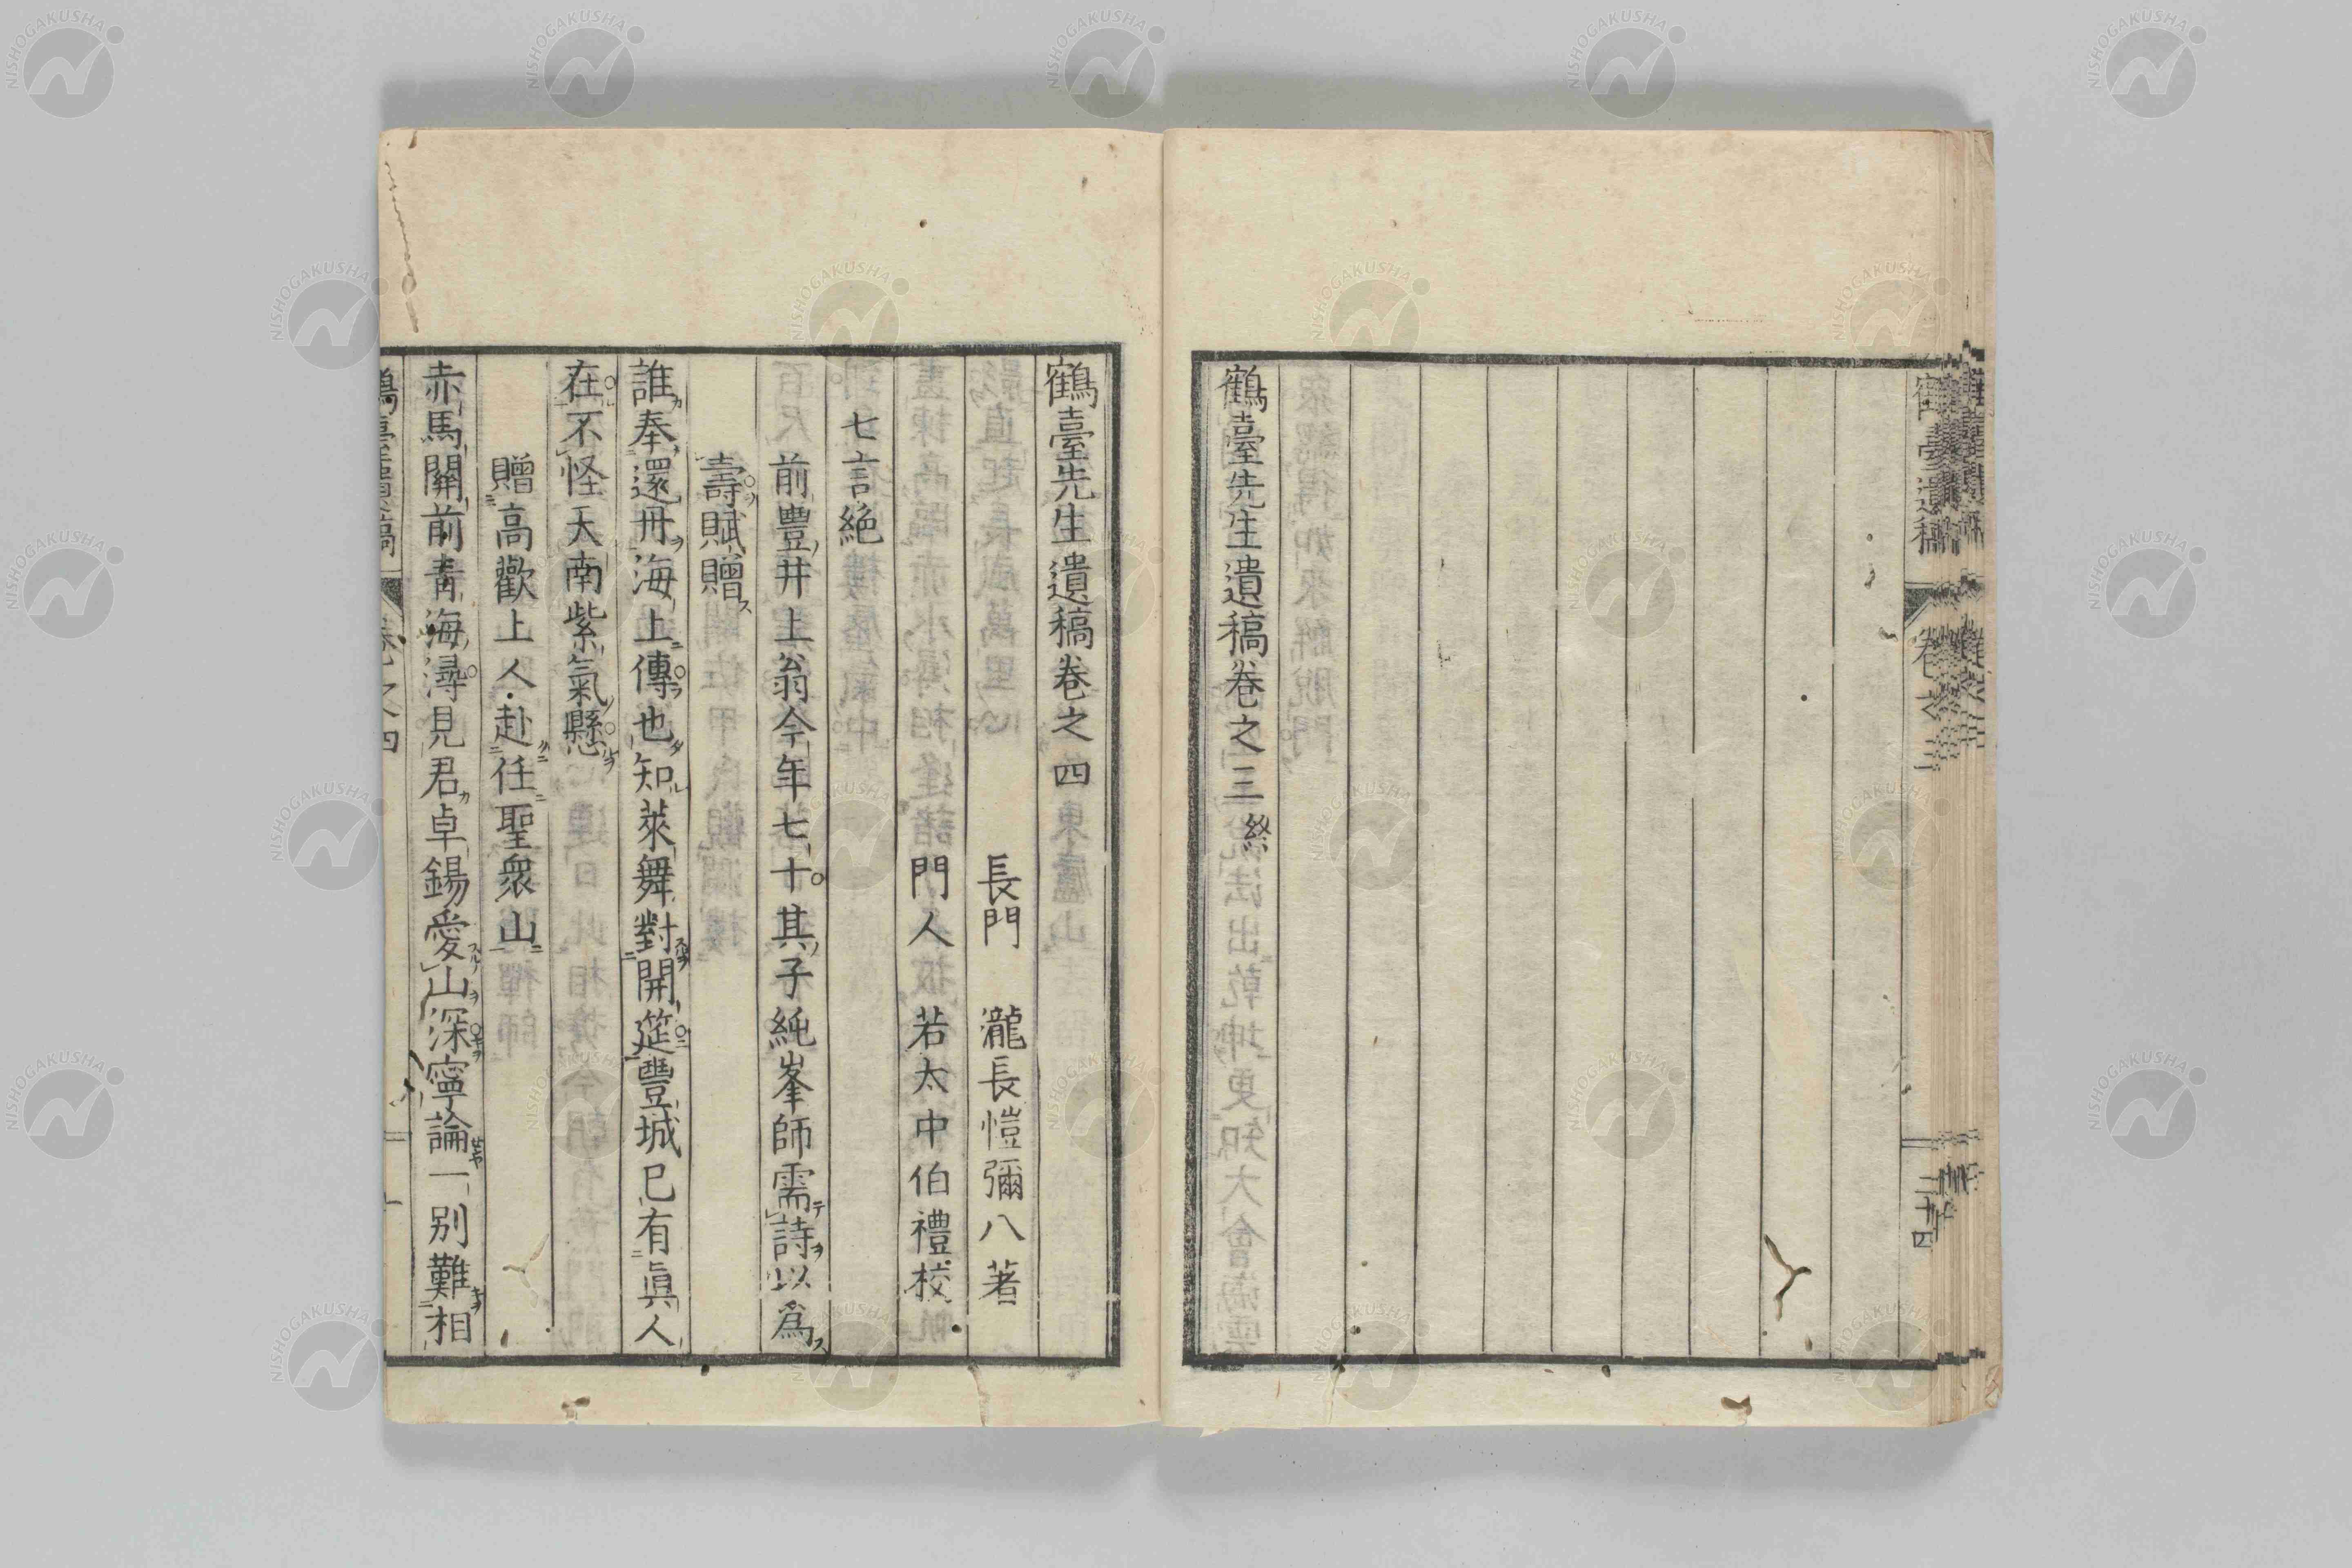 鶴臺先生遺稿卷之三終
鶴臺先生遺稿卷之四
長門 瀧長愷彌八著
門人 若太中伯禮校
七言絶
前豐井上翁今年七十其子純峯師需詩以爲
壽賦贈
誰奉還丹海上傳也知萊舞對開筵豐城已有眞人
在不怪天南紫氣懸
贈高歡上人赴任聖衆山
赤馬關前青海潯見君卓錫愛山深寧論一別難相
NISHOGAKUSHA